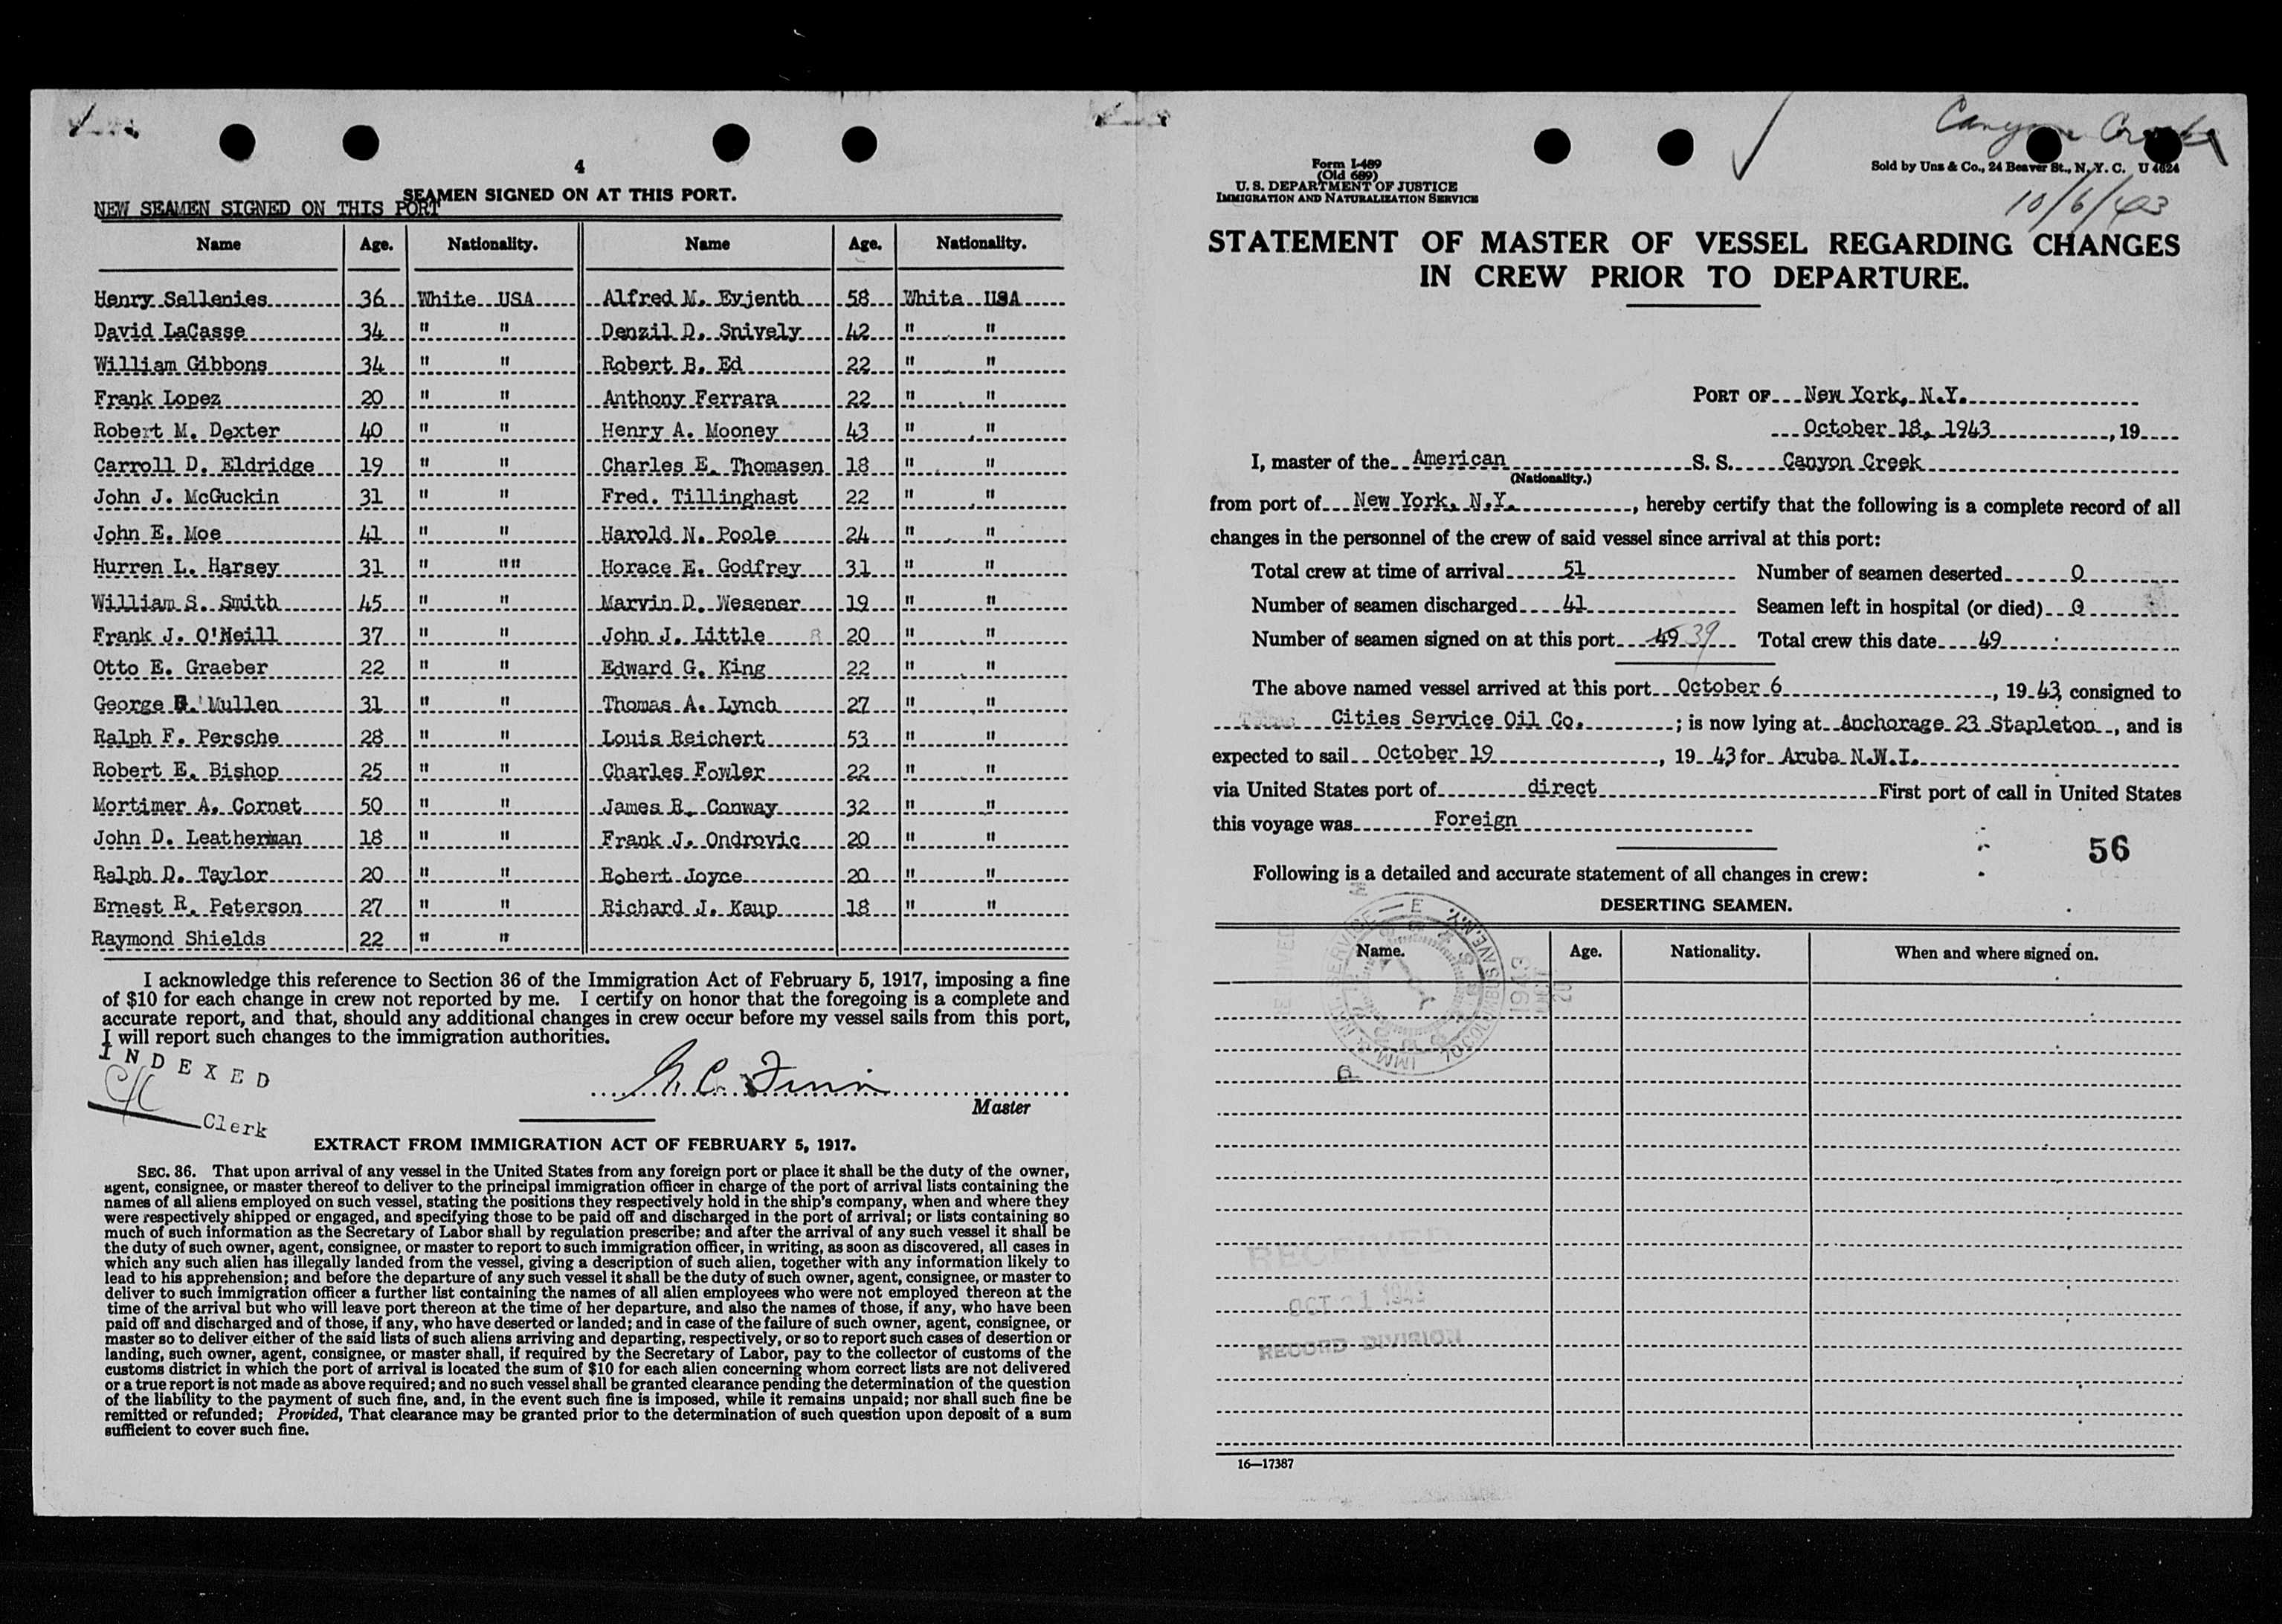 4
SEAMEN SIGNED ON AT THIS PORT.
NEW SEAMEN SIGNED ON THIS PORT
Name Age. Nationality. Name Age. Nationality.
Henry Sellenies 36 White USA Alfred M. Evjenth 58 White USA
David LaCasse 34 " " Denzil D. Snively 42 " "
William Gibbons 34 " " Robert B. Ed 22 " "
Frank Lopez 20 " " Anthony Ferrara 22 " "
Robert M. Dexter 40 " " Henry A. Mooney 43 " "
Carroll D. Eldridge 19 " " Charles E. Thomasen 18 " "
John J. McGuckin 31 " " Fred. Tillinghast 22 " "
John E. Moe 41 " " Harold N. Poole 24 " "
Hurren L. Harsey 31 " "" Horace E. Godfrey 31 " "
William S. Smith 45 " " Marvin D. Wesener 19 " "
Frank J. O'Neill 37 " " John J. Little 20 " "
Otto E. Graeber 22 " " Edward G. King 22 " "
George Mullen 31 " " Thomas A. Lynch 27 " "
Ralph F. Persche 28 " " Louis Reichert 53 " "
Robert E. Bishop 25 " " Charles Fowler 22 " "
Mortimer A. Cornet 50 " " James R. Conway 32 " "
John D. Leatherman 18 " " Frank J. Ondrovic 20 " "
Ralph D. Taylor 20 " " Robert Joyce 20 " "
Ernest R. Peterson 27 " " Richard J. Kaup 18 " "
Raymond Shields 22 " "
I acknowledge this reference to Section 36 of the Immigration Act of February 5, 1917, imposing a fine
of $10 for each change in crew not reported by me. I certify on honor that the foregoing is a complete and
accurate report, and that, should any additional changes in crew occur before my vessel sails from this port,
I will report such changes to the immigration authorities.
INDEXED
Clerk
Master
EXTRACT FROM IMMIGRATION ACT OF FEBRUARY 5, 1917.
SEC. 36. That upon arrival of any vessel in the United States from any foreign port or place it shall be the duty of the owner,
agent, consignee, or master thereof to deliver to the principal immigration officer in charge of the port of arrival lists containing the
names of all aliens employed on such vessel, stating the positions they respectively hold in the ship's company, when and where they
were respectively shipped or engaged, and specifying those to be paid off and discharged in the port of arrival; or lists containing so
much of such information as the Secretary of Labor shall by regulation prescribe; and after the arrival of any such vessel it shall be
the duty of such owner, agent, consignee, or master to report to such immigration officer, in writing, as soon as discovered, all cases in
which any such alien has illegally landed from the vessel, giving a description of such alien, together with any information likely to
lead to his apprehension; and before the departure of any such vessel it shall be the duty of such owner, agent, consignee, or master to
deliver to such immigration officer a further list containing the names of all alien employees who were not employed thereon at the
time of the arrival but who will leave port thereon at the time of her departure, and also the names of those, if any, who have been
paid off and discharged and of those, if any, who have deserted or landed; and in case of the failure of such owner, agent, consignee, or
master so to deliver either of the said lists of such aliens arriving and departing, respectively, or so to report such cases of desertion or
landing, such owner, agent, consignee, or master shall, if required by the Secretary of Labor, pay to the collector of customs of the
customs district in which the port of arrival is located the sum of $10 for each alien concerning whom correct lists are not delivered
or a true report is not made as above required; and no such vessel shall be granted clearance pending the determination of the question
of the liability to the payment of such fine, and, in the event such fine is imposed, while it remains unpaid; nor shall such fine be
remitted or refunded; Provided, That clearance may be granted prior to the determination of such question upon deposit of a sum
sufficient to cover such fine.
Canyon Creek
Form I-489
(Old 689)
U. S. DEPARTMENT OF JUSTICE
IMMIGRATION AND NATURALIZATION SERVICE
Sold by Uns & Co., 24 Beaver St., N. Y. C. U 4624
10/6/43
STATEMENT OF MASTER OF VESSEL REGARDING CHANGES
IN CREW PRIOR TO DEPARTURE.
PORT OF New York, N.Y.
October 18, 1943, 19
I, master of the American S. S. Canyon Creek
(Nationality.)
from port of New York, N.Y., hereby certify that the following is a complete record of all
changes in the personnel of the crew of said vessel since arrival at this port:
Total crew at time of arrival 51 Number of seamen deserted 0
Number of seamen discharged 41 Seamen left in hospital (or died) 0
Number of seamen signed on at this port 49 39 Total crew this date 49
The above named vessel arrived at this port October 6, 19 43, consigned to
Cities Service Oil Co. ; is now lying at Anchorage 23 Stapleton, and is
expected to sail October 19, 19 43 for Aruba N.W.I.
via United States port of direct First port of call in United States
this voyage was Foreign
56
Following is a detailed and accurate statement of all changes in crew:
DESERTING SEAMEN.
Name. Age. Nationality. When and where signed on.
1943 OCT 20
RECEIVED
OCT 21 1943
RECORD DIVISION
16—17387